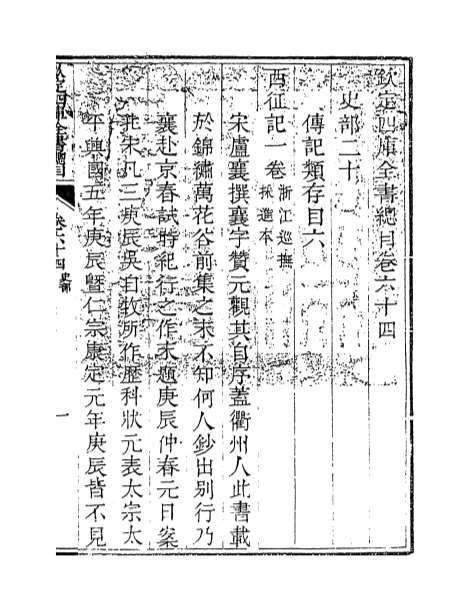 欽定四庫全書總目卷六十四
史部二十
傳記類存目六
西征記一卷浙江巡撫採進本
宋盧襄撰襄字贊元觀其自序蓋衢州人此書載
於錦繡萬花谷前集之末不知何人鈔出別行乃
襄赴京春試時紀行之作末題庚辰仲春元日案
北宋凡三庚辰吳自牧所作歴科狀元表太宗太
平興國五年庚辰暨仁宗康定元年庚辰皆不見
欽定四庫全書總目
卷六十四 史部
一